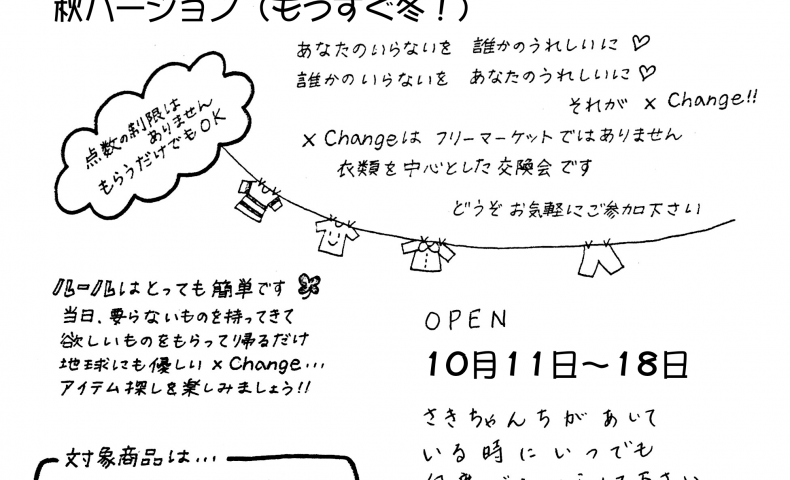 秋バージョン（もうすぐ冬！）
あなたのいらないを 誰かのうれしいに♡
誰かのいらないを あなたのうれしいに♡
それが x Change!!
点数の制限は
ありません
もらうだけでもOK
x Changeは フリーマーケットではありません
衣類を中心とした交換会です
どうぞ お気軽にご参加下さい
ルールはとっても簡単です
当日、要らないものを持ってきて
欲しいものをもらって帰るだけ
地球にも優しい x Change…
アイテム探しを楽しみましょう!!
OPEN
10月11日～18日
さきちゃんちが あいて
いる時に いつでも
対象商品は…